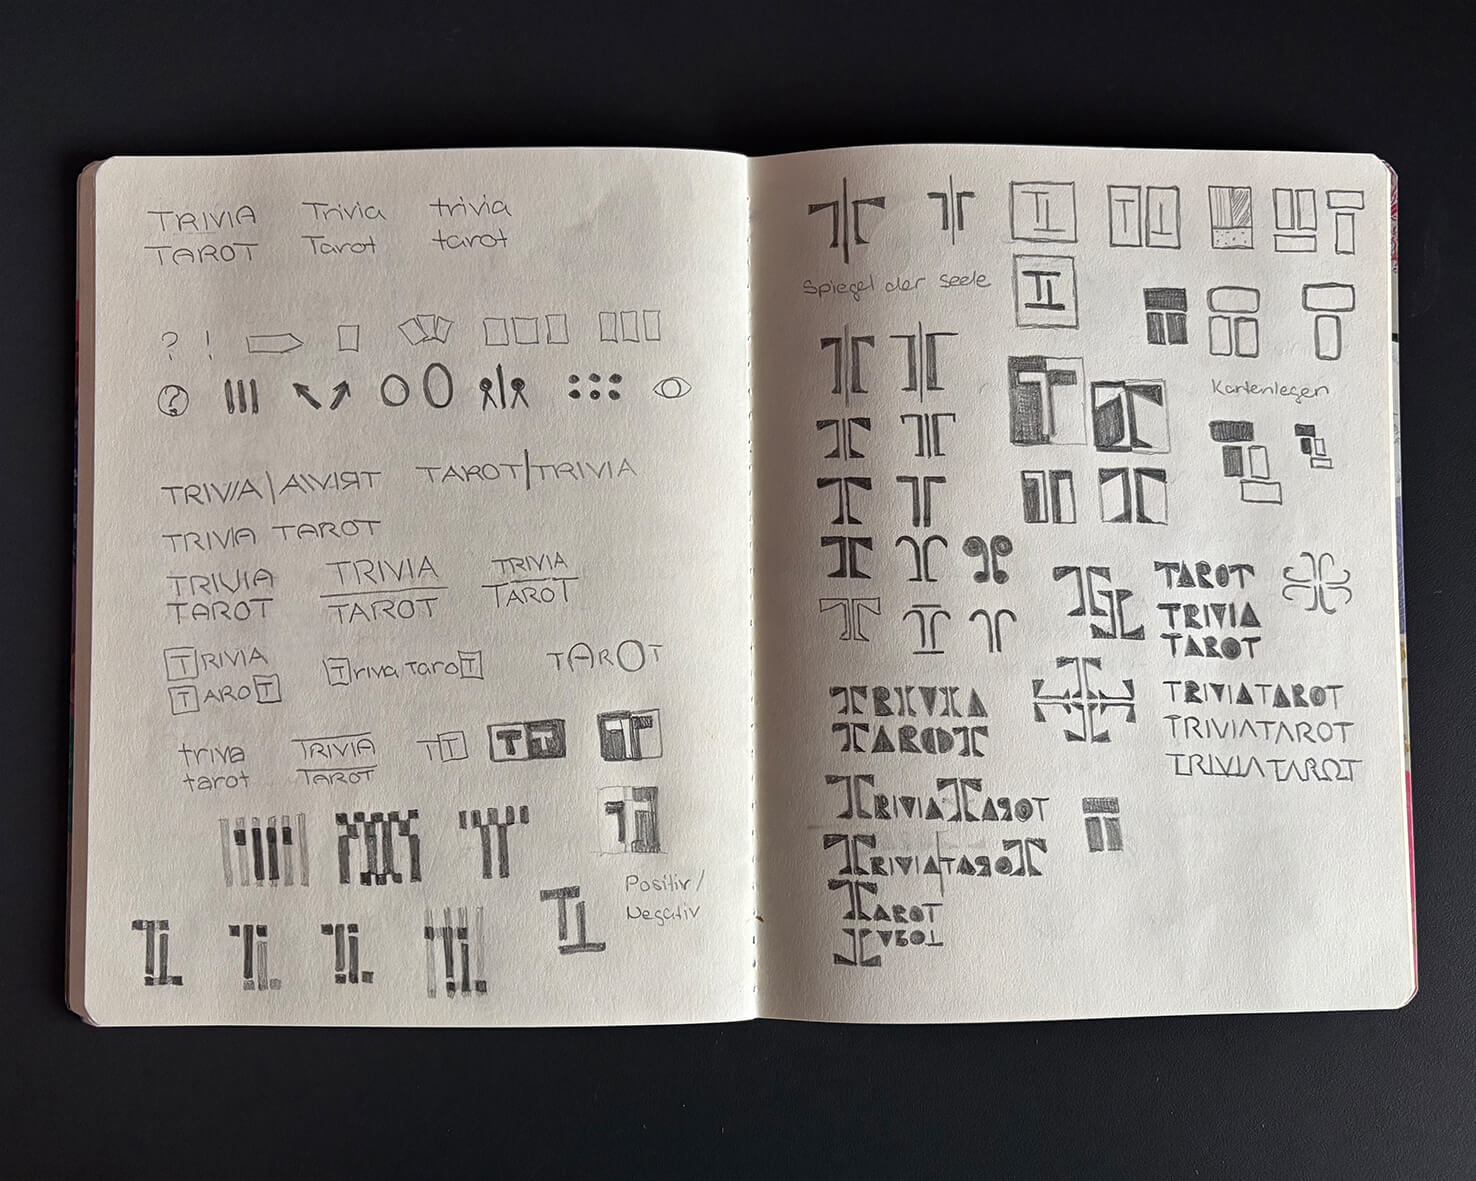 TRIVIA Trivia trivia
TAROT Tarot tarot
? !
?
TRIVIA | AIVIRT TAROT | TRIVIA
TRIVIA TAROT
TRIVIA TRIVIA TRIVIA
TAROT TAROT TAROT
TRIVIA Triva Tarot TAROT
TAROT
triva TRIVIA TT TT TT
tarot TAROT
Positiv /
Negativ
Spiegel der Seele
Kartenlegen
TAROT
TRIVIA
TAROT
TRIVIA
TAROT
TRIVIATAROT
TRIVIATAROT
TRIVIATAROT
TRIVIATAROT
TRIVIATAROT
TAROT
TAROT